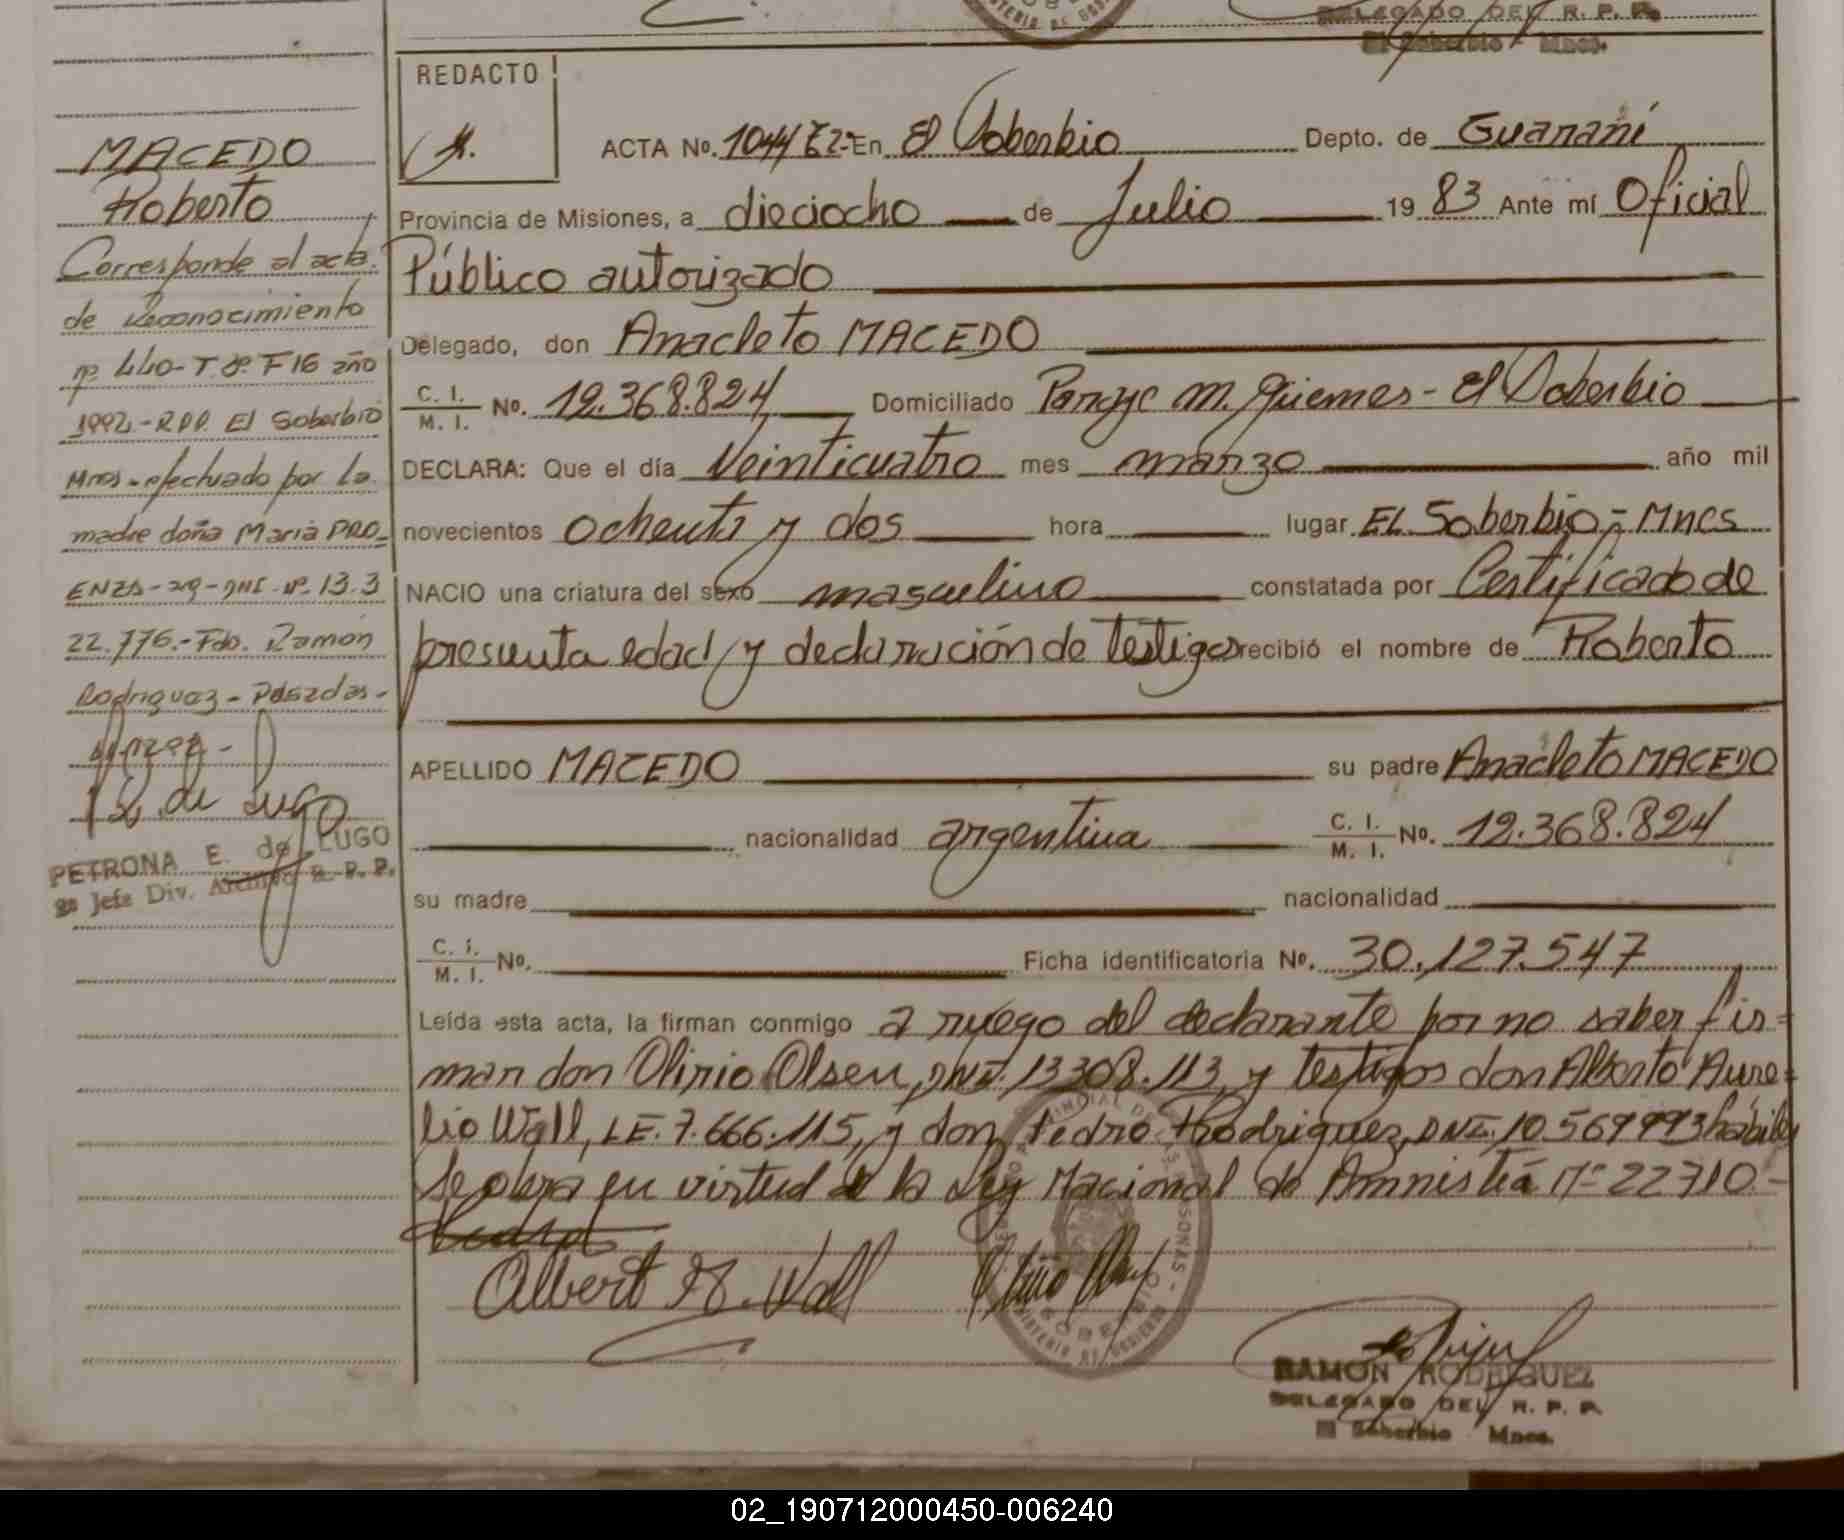 DELEGADO DEL R. P. P.
El Soberbio Mnes.
REDACTO
ACTA No. 1044 En El Soberbio Depto. de Guaraní
Provincia de Misiones, a dieciocho de Julio 1983 Ante mí Oficial
Público autorizado
Delegado, don Anacleto MACEDO
C. I. / M. I. No. 12.368.824 Domiciliado Paraje M. Güemes - El Soberbio
DECLARA: Que el día Veinticuatro mes marzo año mil
novecientos ochenta y dos hora lugar EL Soberbio - Mnes
NACIO una criatura del sexo masculino constatada por Certificado de
presunta edad y declaración de testigos recibió el nombre de Roberto
APELLIDO MACEDO su padre Anacleto MACEDO
nacionalidad argentina C. I. / M. I. No. 12.368.824
su madre nacionalidad
C. I. / M. I. No. Ficha identificatoria No. 30.127.547
Leída esta acta, la firman conmigo a ruego del declarante por no saber fir=
mar don Olirio Olsen, DNI. 13308.113, y testigos don Alberto Aure=
lio Wall, LE. 7.666.115, y don Pedro Rodriguez, DNI. 10.569993 hábiles
Se obra en virtud de la Ley Nacional de Amnistía Nº 22710.-
Albert A. Wall
RAMON RODRIGUEZ
DELEGADO DEL R. P. P.
El Soberbio Mnes.
MACEDO
Roberto
Corresponde al acta
de Reconocimiento
nº 440 - T. 8º F 16 año
1992 - RPP. El Soberbio
Mnes - efectuado por la
madre doña Maria PRO_
ENZA - arg - DNI - Nº. 13.3
22.776.- Fdo. Ramón
Rodriguez - Posadas -
PETRONA E. de LUGO
2º Jefe Div. Archivo R. P. P.
02_190712000450-006240